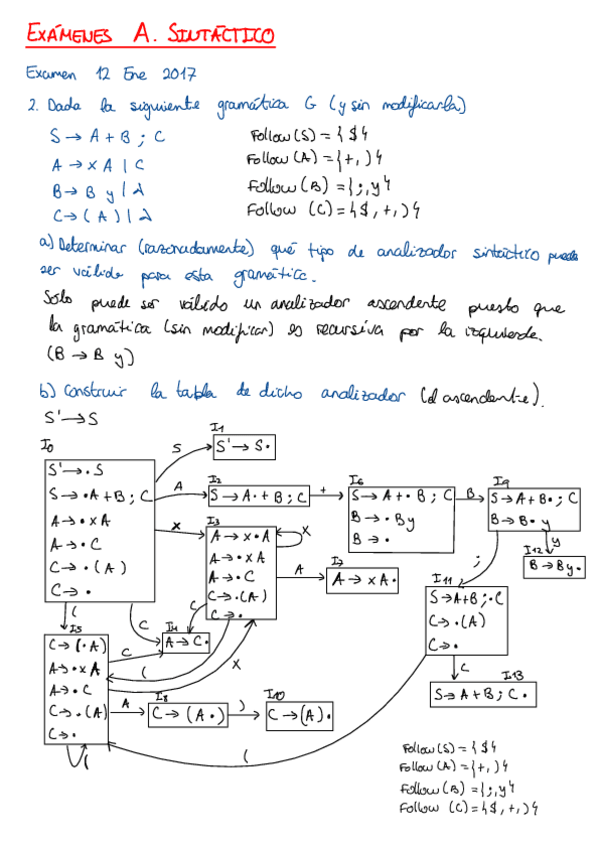 EXÁMENES A. SINTÁCTICO
Examen 12 Ene 2017
2. Dada la siguiente gramática G (y sin modificarla)
S → A + B ; C
Follow(S) = {$}
A → x A | C
Follow(A) = {+, )}
B → B y | λ
Follow(B) = {;, y}
C → ( A ) | λ
Follow (C) = {$, +, )}
a) Determinar (razonadamente) qué tipo de analizador sintáctico puede
ser válido para esta gramática.
Solo puede ser válido un analizador ascendente puesto que
la gramática (sin modificar) es recursiva por la izquierda.
(B → B y)
b) Construir la tabla de dicho analizador (el ascendente).
S' → S
I0
S' → . S
S → . A + B ; C
A → . x A
A → . C
C → . ( A )
C → .
S
I1
S' → S .
A
I2
S → A . + B ; C
+
I6
S → A + . B ; C
B → . B y
B → .
B
I9
S → A + B . ; C
B → B . y
y
I12
B → B y .
x
I3
A → x . A
A → . x A
A → . C
C → . (A)
C → .
x
A
I7
A → x A .
;
I11
S → A + B ; . C
C → . (A)
C → .
C
I13
S → A + B ; C .
(
C
C
I4
A → C .
I5
C → ( . A)
A → . x A
A → . C
C → . (A)
C → .
C
(
x
A
I8
C → (A . )
)
I10
C → (A) .
(
(
Follow(S) = {$}
Follow(A) = {+, )}
Follow(B) = {;, y}
Follow (C) = {$, +, )}